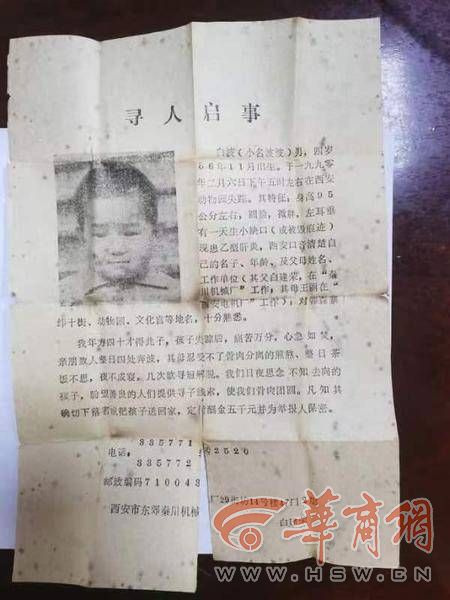 寻人启事
白波(小名波波)男,四岁
86年11月出生。于一九九零
年二月六日下午五时左右在西安
动物园失踪。其特征:身高95
公分左右,圆脸,微胖,左耳垂
有一天生小缺口(或被毁痕迹)
现患乙型肝炎,西安口音清楚自
己的名子、年龄、及父母姓名、
工作单位(其父白建荣,在"秦
川机械厂"工作;其母王
西安电机厂"工作);对
纬十街、动物园、文化宫等地名,十分熟悉。
我年方四十才得此子,孩子失踪后,痛苦万分,心急如焚,
亲朋故人整日四处奔波,其母忍受不了骨肉分离的煎熬,整日茶
饭不想,夜不成寝。几次欲寻短解脱。我们日夜思念不知去向的
孩子,盼望善良的人们提供寻子线索,使我们骨肉团圆。凡知其
确切下落者或把孩子送回家,定付酬金五千元并为举报人保密。
335771
电话: 2520
335772
邮政编码710043
西安市东郊秦川机械 厂29街坊
白
华商网
WWW.HSW.CN